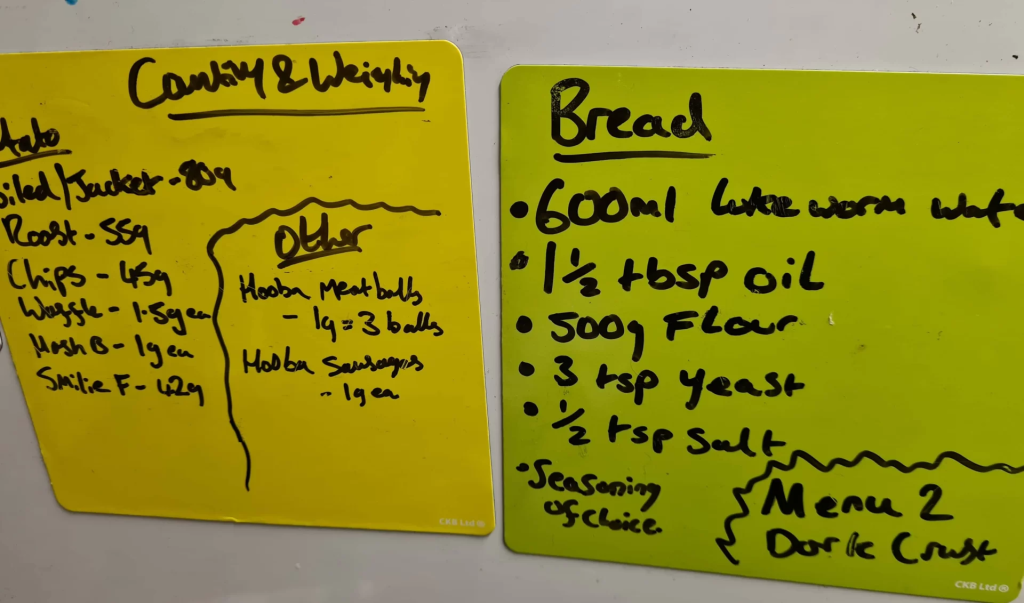 Cantity & Weighing
tato
oiled/Jacket - 80g
Roast - 55g
Chips - 45g
Waffle - 1.5g ea
Hash B - 1g ea
Smilie F - 42g
Other
Hooba Meatballs
- 1g = 3 balls
Hooba Sausages
- 1g ea
CKB Ltd ®
Bread
• 600ml luke worm wate
• 1 ½ tbsp oil
• 500g Flour
• 3 tsp yeast
• ½ tsp salt
• Seasoning
of choice
Menu 2
Dork Crust
CKB Ltd ®